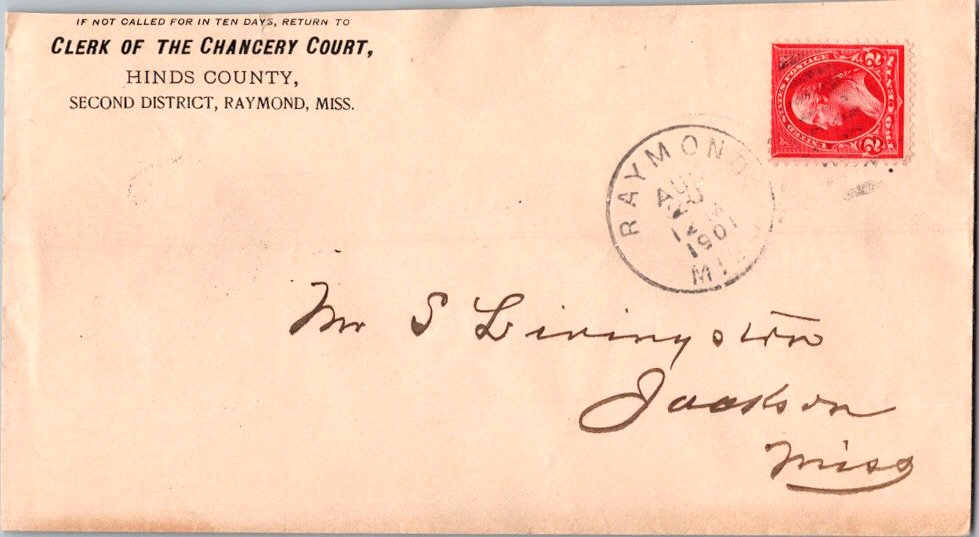 IF NOT CALLED FOR IN TEN DAYS, RETURN TO
CLERK OF THE CHANCERY COURT,
HINDS COUNTY,
SECOND DISTRICT, RAYMOND, MISS.
UNITED STATES POSTAGE
2 2
RAYMOND
AUG
12 M
1901
MISS
Mr S Livingston
Jackson
Miss